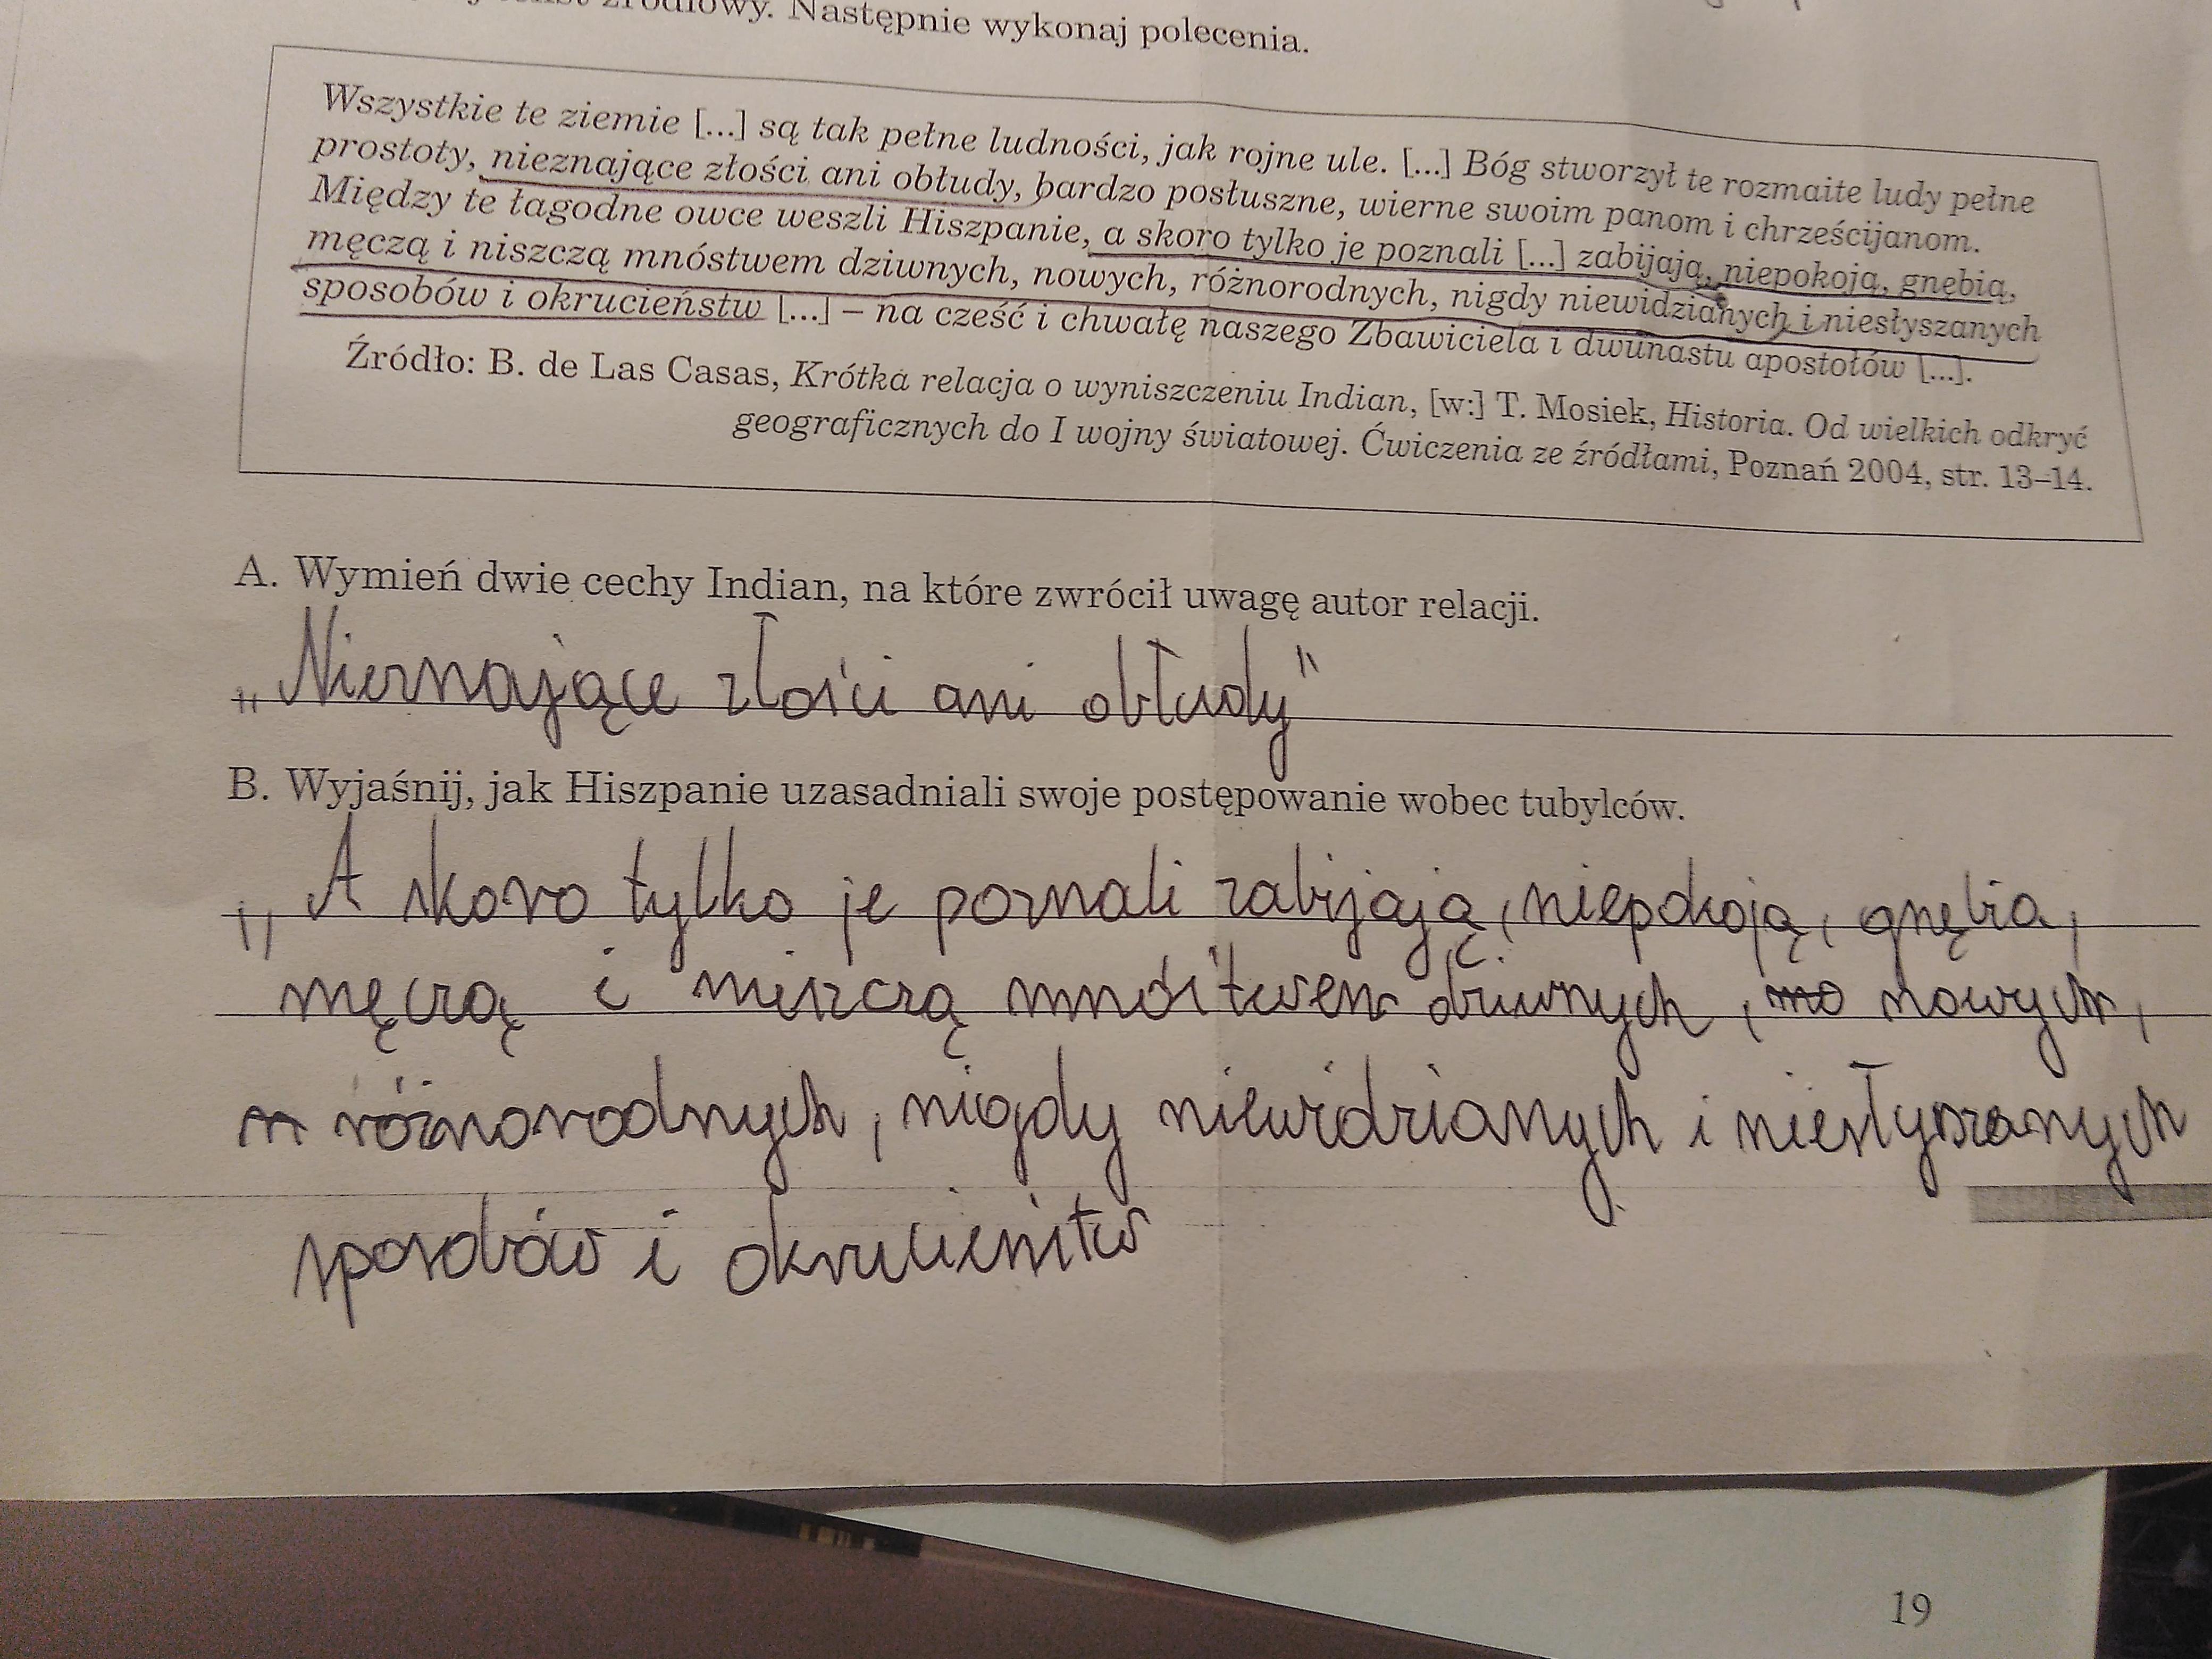 tekst źródłowy. Następnie wykonaj polecenia.
Wszystkie te ziemie [...] są tak pełne ludności, jak rojne ule. [...] Bóg stworzył te rozmaite ludy pełne
prostoty, nieznające złości ani obłudy, bardzo posłuszne, wierne swoim panom i chrześcijanom.
Między te łagodne owce weszli Hiszpanie, a skoro tylko je poznali [...] zabijają, niepokoją, gnębią,
męczą i niszczą mnóstwem dziwnych, nowych, różnorodnych, nigdy niewidzianych i niesłyszanych
sposobów i okrucieństw [...] – na cześć i chwałę naszego Zbawiciela i dwunastu apostołów [...].
Źródło: B. de Las Casas, Krótka relacja o wyniszczeniu Indian, [w:] T. Mosiek, Historia. Od wielkich odkryć
geograficznych do I wojny światowej. Ćwiczenia ze źródłami, Poznań 2004, str. 13–14.
A. Wymień dwie cechy Indian, na które zwrócił uwagę autor relacji.
„Nieznające złości ani obłudy"
B. Wyjaśnij, jak Hiszpanie uzasadniali swoje postępowanie wobec tubylców.
„A skoro tylko je poznali zabijają, niepokoją, gnębia,
męczą i niszczą mnóstwem dziwnych, nowych,
różnorodnych, nigdy niewidzianych i niesłyszanych
sposobów i okrucieństw
19